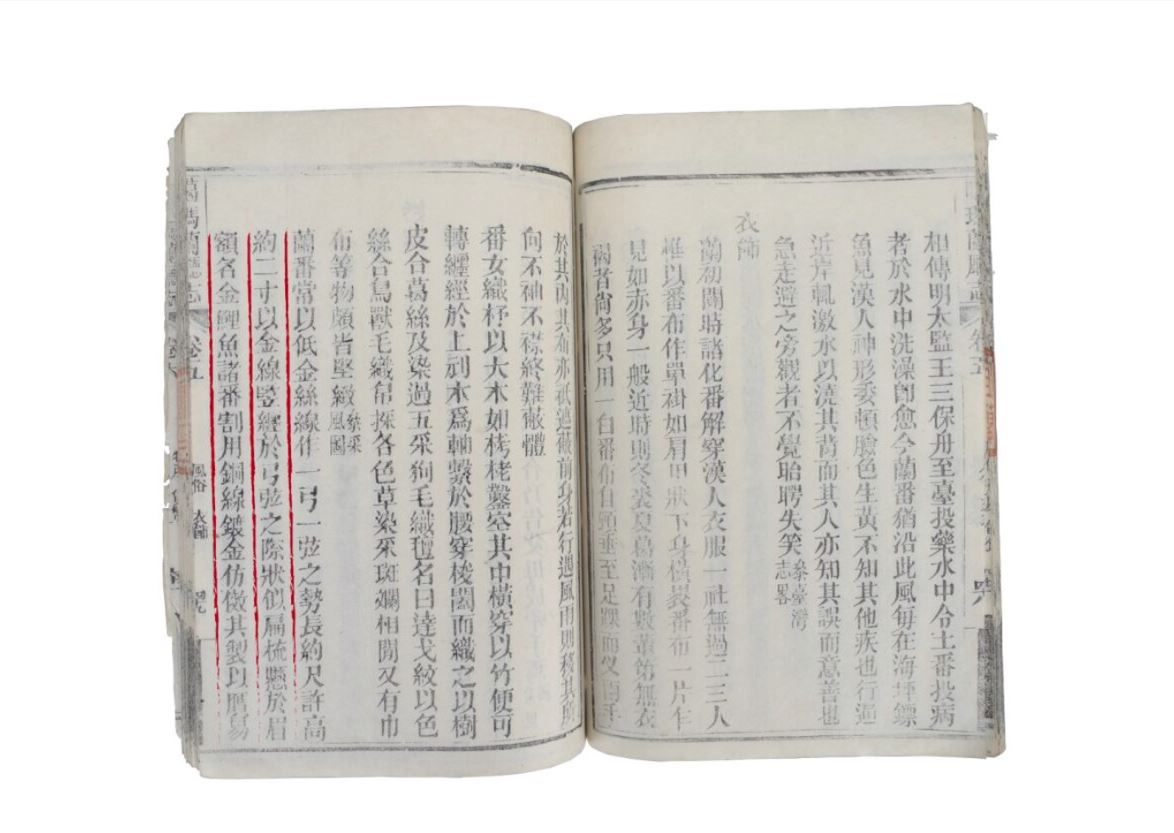 相傳明太監王三保舟至臺投藥水中令土番投病
者於水中洗澡卽愈今蘭番猶沿此風每在海墘鏢
魚見漢人神形委頓臉色生黃不知其他疾也行逼
近岸輒激水以澆其背而其人亦知其誤而意善也
急走避之旁觀者不覺眙聘失笑參臺灣志畧
衣飾
蘭初闢時諸化番解穿漢人衣服一社無過二三人
惟以番布作單褂如肩甲狀下身橫裹番布一片乍
見如赤身一般近時則冬裘夏葛漸有數輩第無衣
褐者尙多只用一白番布自頸垂至足踝而叉兩手
於其內其布亦祇遮蔽前身若行遇風雨則移其所
向不袖不襟終難蔽體
番女織杼以大木如栲栳鑿空其中橫穿以竹便可
轉纏經於上刓木爲軸繫於腰穿梭闔而織之以樹
皮合葛絲及染過五采狗毛織氆名曰達戈紋以色
絲合鳥獸毛織帛採各色草染采斑斕相間又有巾
布等物頗皆堅緻參采風圖
蘭番常以低金絲線作一弓一弦之勢長約尺許高
約二寸以金線豎纏於弓弦之際狀似扁梳懸於眉
額名金鯉魚諸番割用銅線鍍金仿傚其製以應易
噶瑪蘭廳志 卷五 風俗 衣飾